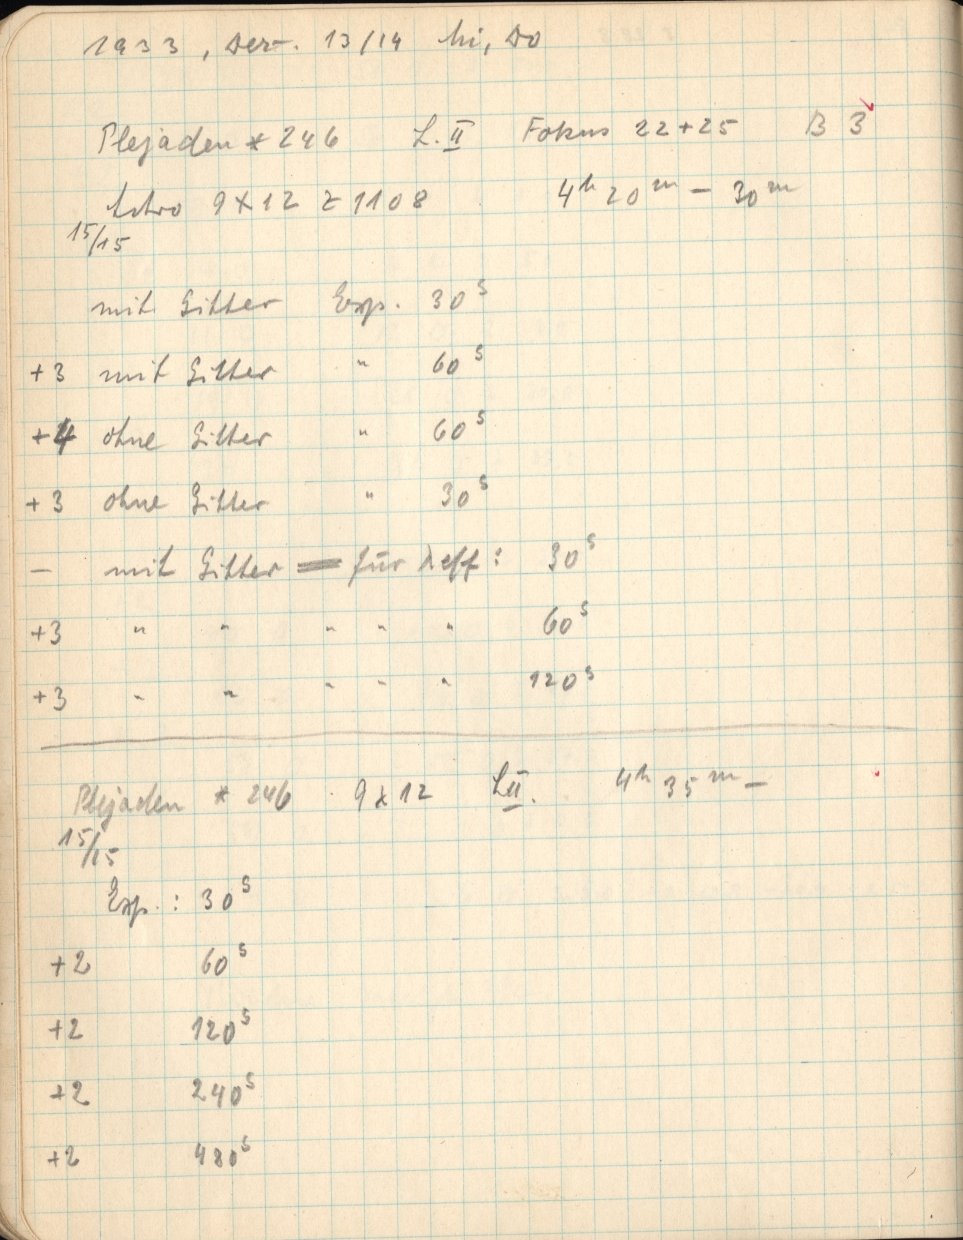 1933, Dez. 13/14 Mi, Do
Plejaden * 246 L. II Fokus 22+25 B 3
Astro 9 x 12 Z 1108 4h 20m - 30m
15/15
mit Gitter Exp. 30s
+3 mit Gitter " 60s
+4 ohne Gitter " 60s
+3 ohne Gitter " 30s
- mit Gitter = für λeff: 30s
+3 " " " " " 60s
+3 " " " " " 120s
Plejaden * 246 9 x 12 L II. 4h 35m -
15/15
Exp.: 30s
+2 60s
+2 120s
+2 240s
+2 480s